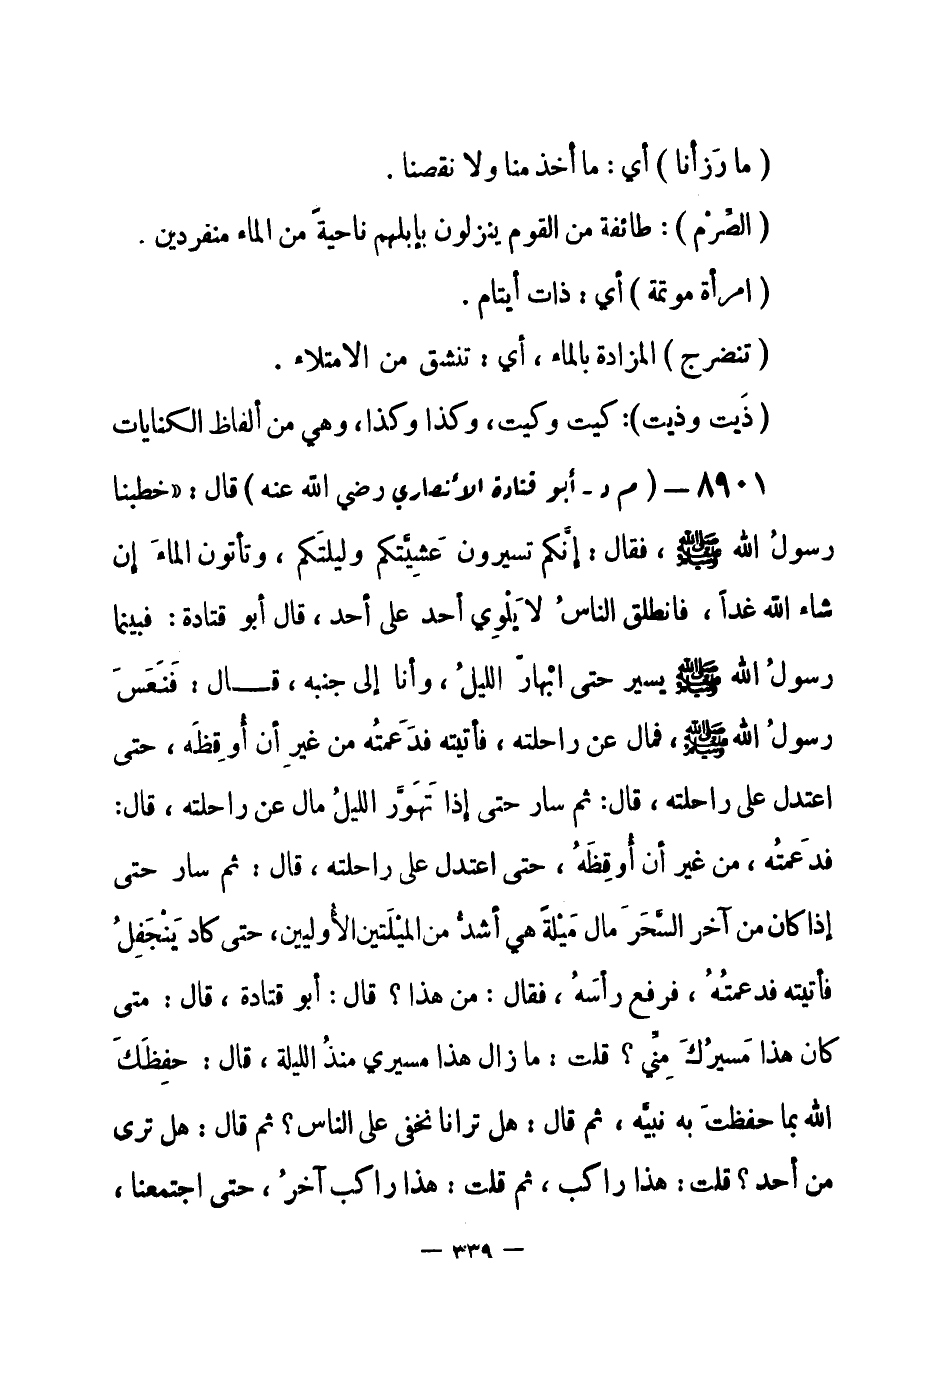 ( ما رَزأنا ) أي : ما أخذ منا ولا نقصنا .
( الصِّرْم ) : طائفة من القوم ينزلون بإبلهم ناحيةً من الماء منفردين .
( امرأة موتمة ) أي : ذات أيتام .
( تنضرج ) المزادة بالماء ، أي : تنشق من الامتلاء .
( ذَيت وذيت): كيت وكيت، وكذا وكذا، وهي من ألفاظ الكنايات
٨٩٠١ – ( م د - أبو قتادة الأنصاري رضي الله عنه ) قال : «خطبنا
رسولُ الله ﷺ ، فقال : إنَّكم تسيرون عَشِيَّتكم وليلتَكم ، وتأتون الماءَ إن
شاء الله غداً ، فانطلق الناسُ لا يَلْوِي أحد على أحد ، قال أبو قتادة : فبينما
رسولُ الله ﷺ يسير حتى ابْهارّ الليلُ ، وأنا إلى جنبه ، قال : فَنَعَسَ
رسولُ الله ﷺ ، فمال عن راحلته ، فأتيته فدَعَمتُه من غيرِ أن أُوقِظَه ، حتى
اعتدل على راحلته ، قال: ثم سار حتى إذا تَهَوَّر الليلُ مال عن راحلته ، قال:
فدعَمتُه ، من غير أن أُوقِظَهُ ، حتى اعتدل على راحلته ، قال : ثم سار حتى
إذا كان من آخر السَّحَرَ مال مَيْلةً هي أشدُّ من الميْلَتين الأُوليين، حتى كاد يَنْجَفِلُ
فأتيته فدعمتُهُ ، فرفع رأسَهُ ، فقال : من هذا ؟ قال : أبو قتادة ، قال : متى
كان هذا مَسيرُكَ مِنِّي ؟ قلت : ما زال هذا مسيري منذُ الليلة ، قال : حفِظَكَ
الله بما حفظتَ به نبيَّه ، ثم قال : هل ترانا نخفى على الناس؟ ثم قال : هل ترى
من أحد ؟ قلت : هذا راكب ، ثم قلت : هذا راكب آخرُ ، حتى اجتمعنا ،
– ٣٣٩ –